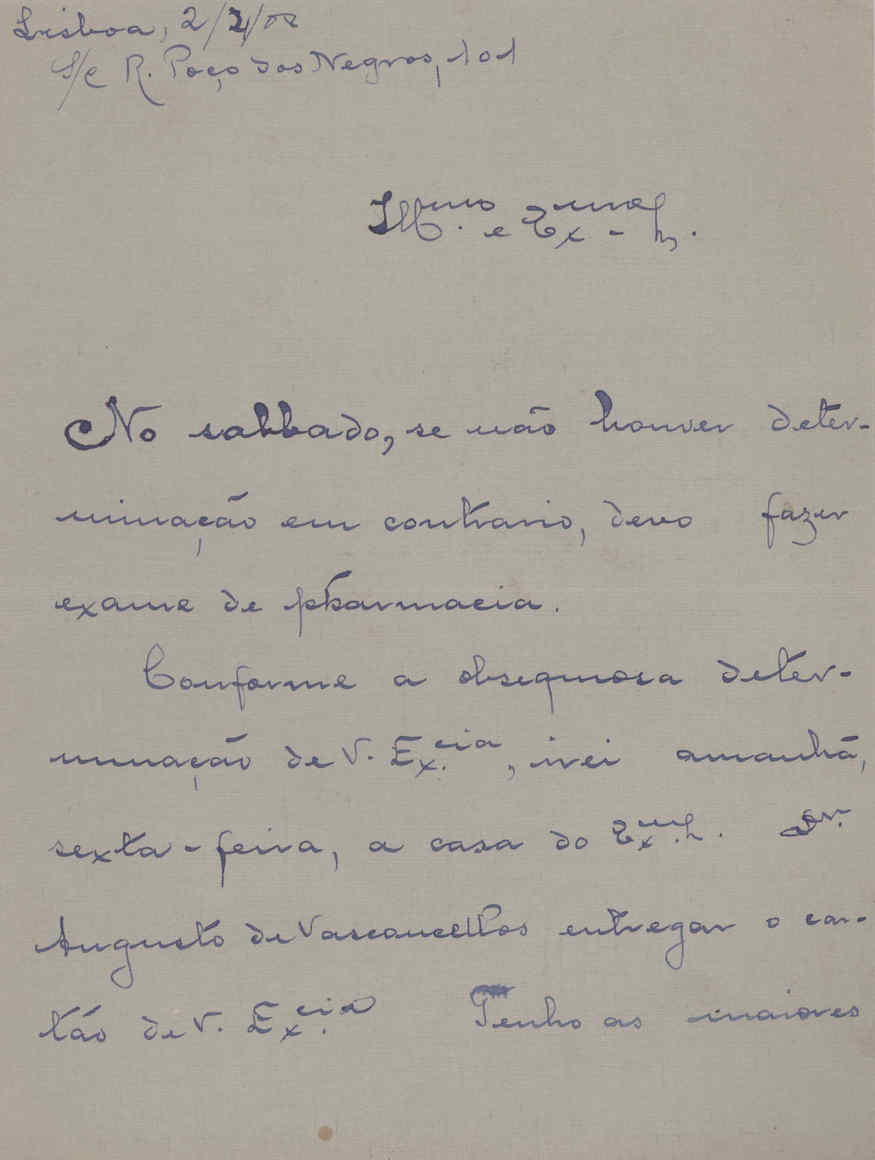 Lisboa, 2/7/08
S/C R. Poço dos Negros, 101
Ill.mo e Ex.mo
No sabbado, se não houver deter-
minação em contrario, devo fazer
exame de pharmacia.
Conforme a obsequiosa deter-
minação de V. Ex.cia, irei amanhã,
sexta-feira, a casa do Ex.mo Dr.
Augusto de Vasconcellos entregar o car-
tão de V. Ex.cia Tenho as maiores